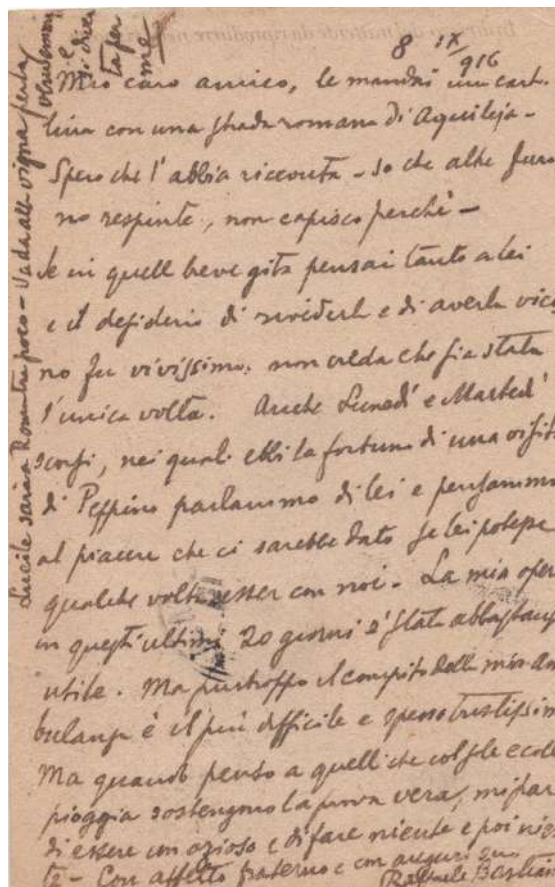 8 IX
916
Mio caro amico, le mandai una carto
lina con una strada romana di Aquileja -
Spero che l'abbia ricevuta - so che altre furo
no respinte, non capisco perchè -
Se in quell breve gita pensai tanto a lei
e il desiderio di rivederla e di averla vici
no fu vivissimo, non creda che sia stata
l'unica volta. Anche Lunedì e Martedì
scorsi, nei quali ebbi la fortuna di una visita
di Peppino parlammo di lei e pensammo
al piacere che ci sarebbe dato se lei potesse
qualche volta esser con noi - La mia opera
in questi ultimi 20 giorni è stata abbastanza
utile. Ma purtroppo il compito della mia am
bulanza è il più difficile e spesso tristissimo
Ma quando penso a quelli che col sole e colla
pioggia sostengono la prova vera, mi pare
di essere un ozioso e di fare niente e poi nien
te - Con affetto fraterno e con auguri suo
Raffaele Bastian
Lucile sarà a Roma tra poco - Vada alla vigna
e si diver
ta per
me